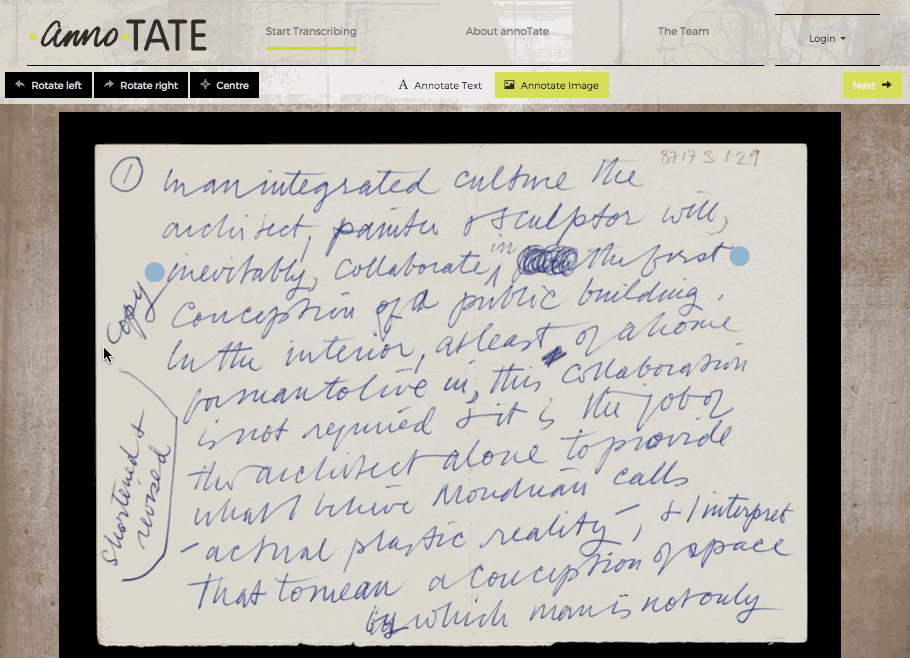 anno TATE
Start Transcribing
About annoTate
The Team
Login
Rotate left
Rotate right
Centre
Annotate Text
Annotate Image
Next
8717 3 1.29
1 In an integrated culture the
architect, painter & sculptor will,
inevitably, collaborate, in the first
conception of a public building.
In the interior, at least of a home
for man to live in, this collaboration
is not required & it is the job of
the architect alone to provide
what I believe Mondrian calls
"actual plastic reality", & I interpret
that to mean a conception of space
by which man is not only
Copy
Shortened &
revised